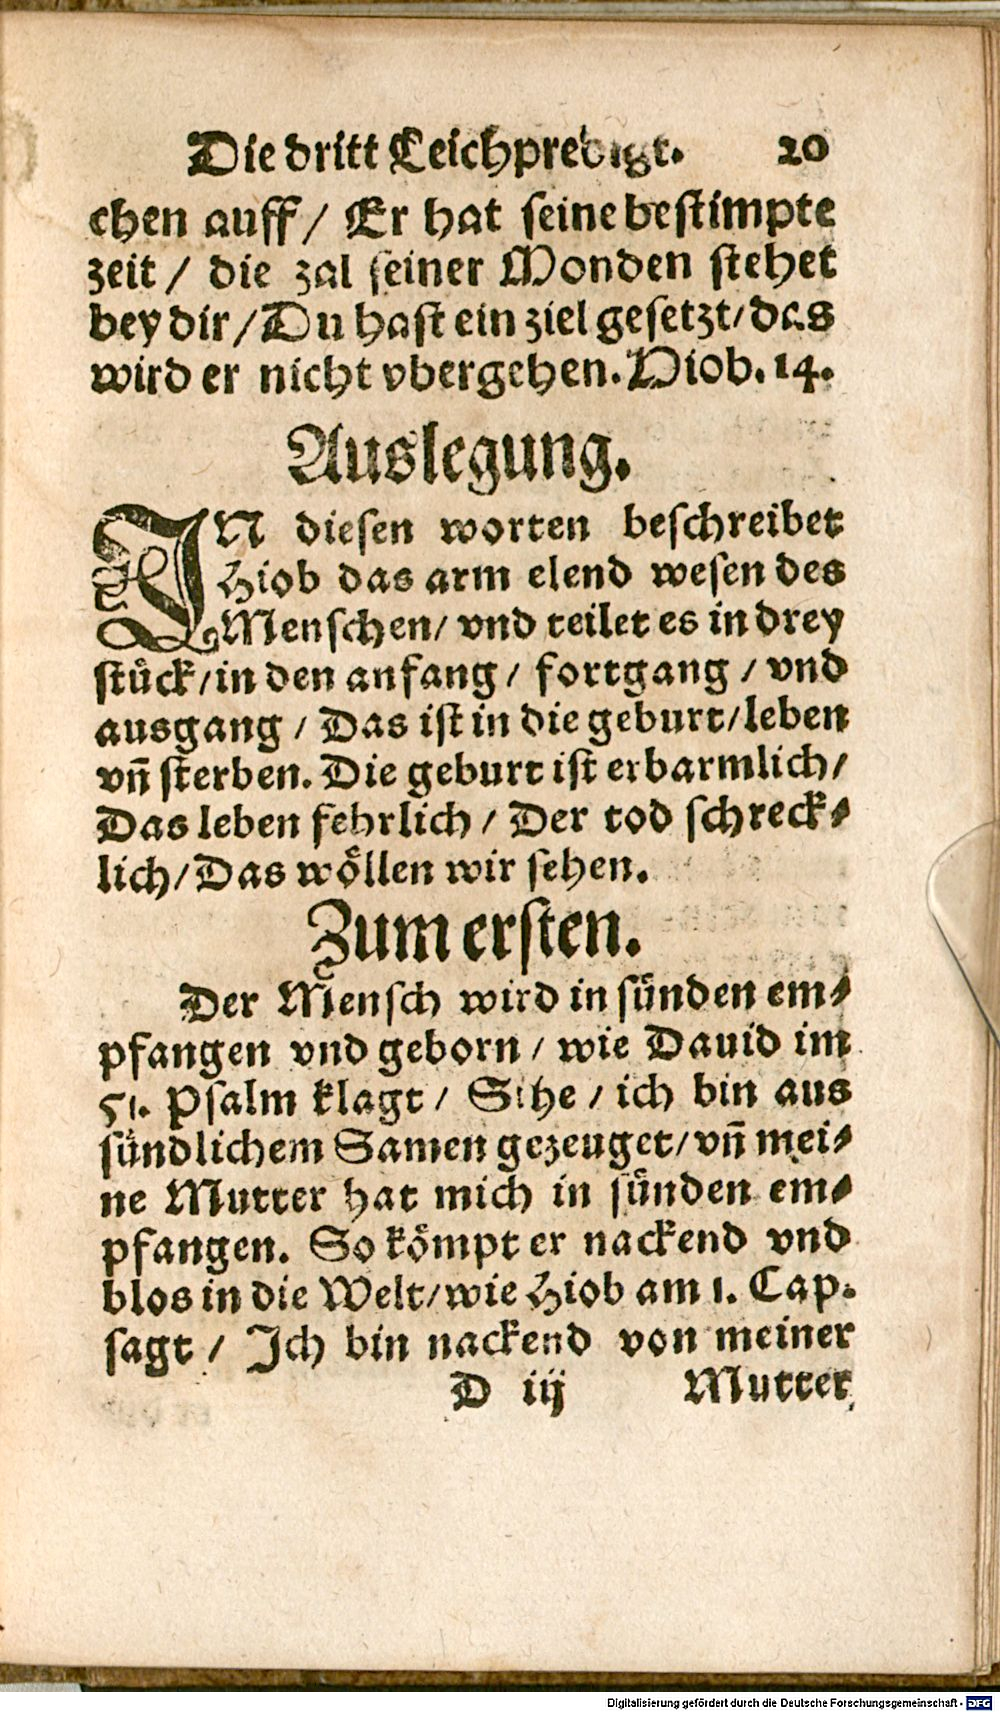 Die dritt Leichpredigt. 20
chen auff / Er hat seine bestimpte
zeit / die zal seiner Monden stehet
bey dir / Du hast ein ziel gesetzt / das
wird er nicht vbergehen. Hiob. 14.
Auslegung.
IN diesen worten beschreibet
Hiob das arm elend wesen des
Menschen / vnd teilet es in drey
stück / in den anfang / fortgang / vnd
ausgang / Das ist in die geburt / leben
vñ sterben. Die geburt ist erbarmlich /
Das leben fehrlich / Der tod schreck⸗
lich / Das wöllen wir sehen.
Zum ersten.
Der Mensch wird in sünden em⸗
pfangen vnd geborn / wie Dauid im
51. Psalm klagt / Sihe / ich bin aus
sündlichem Samen gezeuget / vñ mei⸗
ne Mutter hat mich in sünden em⸗
pfangen. So kömpt er nackend vnd
blos in die Welt / wie Hiob am 1. Cap.
sagt / Ich bin nackend von meiner
D iij Mutter
Digitalisierung gefördert durch die Deutsche Forschungsgemeinschaft - DFG